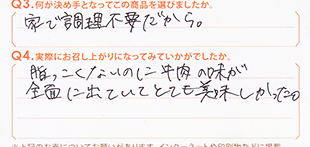 Q3.何が決め手となってこの商品を選びましたか。
家で調理不要だから。
Q4.実際にお召し上がりになってみていかがでしたか。
脂っこくないのに牛肉の味が
全面に出ていてとても美味しかった。